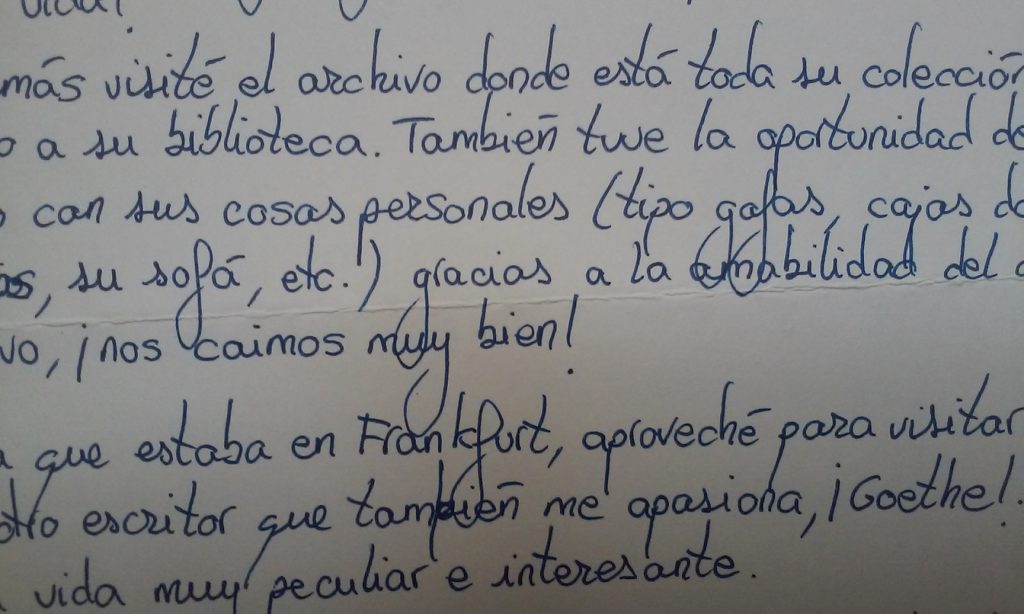 vida!
más visité el archivo donde está toda su colección
o a su biblioteca. También tuve la oportunidad de
o con sus cosas personales (tipo gafas, cajas de
as, su sofá, etc.!) gracias a la amabilidad del
vo, ¡nos caimos muy bien!
a que estaba en Frankfurt, aproveché para visitar
otro escritor que también me apasiona, ¡Goethe!.
vida muy peculiar e interesante.